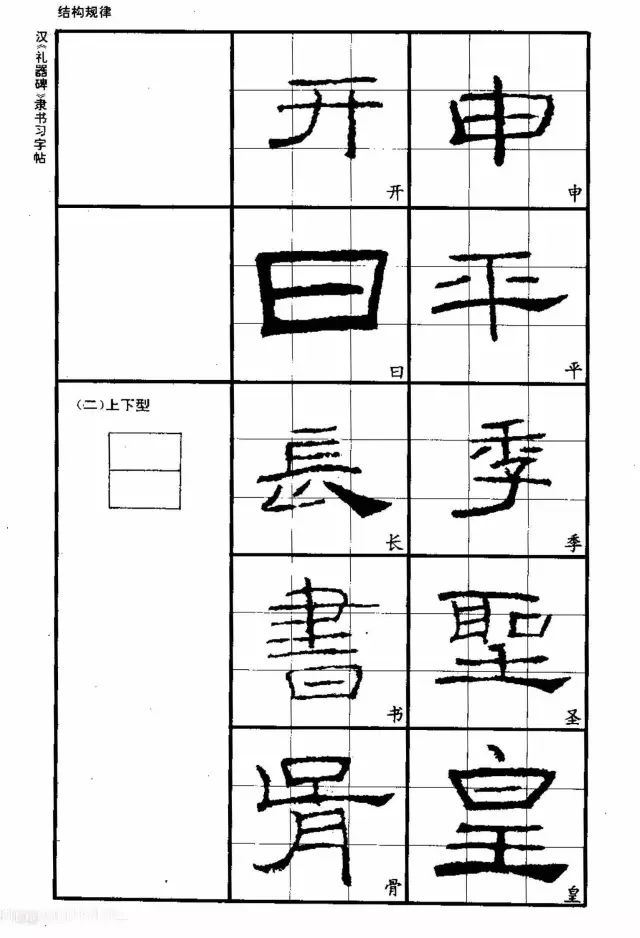 结构规律
汉《礼器碑》隶书习字帖
申
申
平
平
季
季
聖
圣
皇
皇
开
开
曰
曰
長
长
書
书
骨
骨
(二)上下型